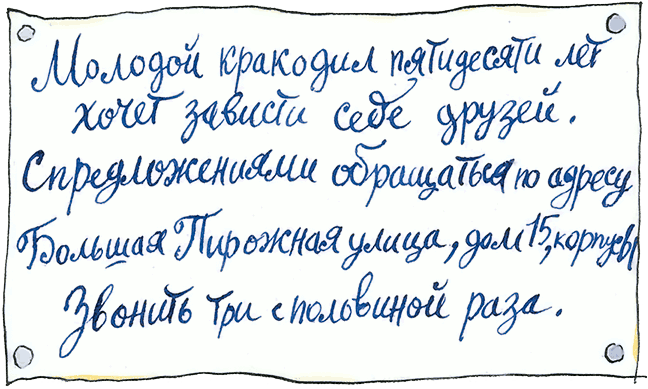 Молодой кракодил пятидесяти лет
хочет зависти себе друзей.
С предложениями обращаться по адресу
Большая Пирожная улица, дом 15, корпус ы
Звонить три с половиной раза.